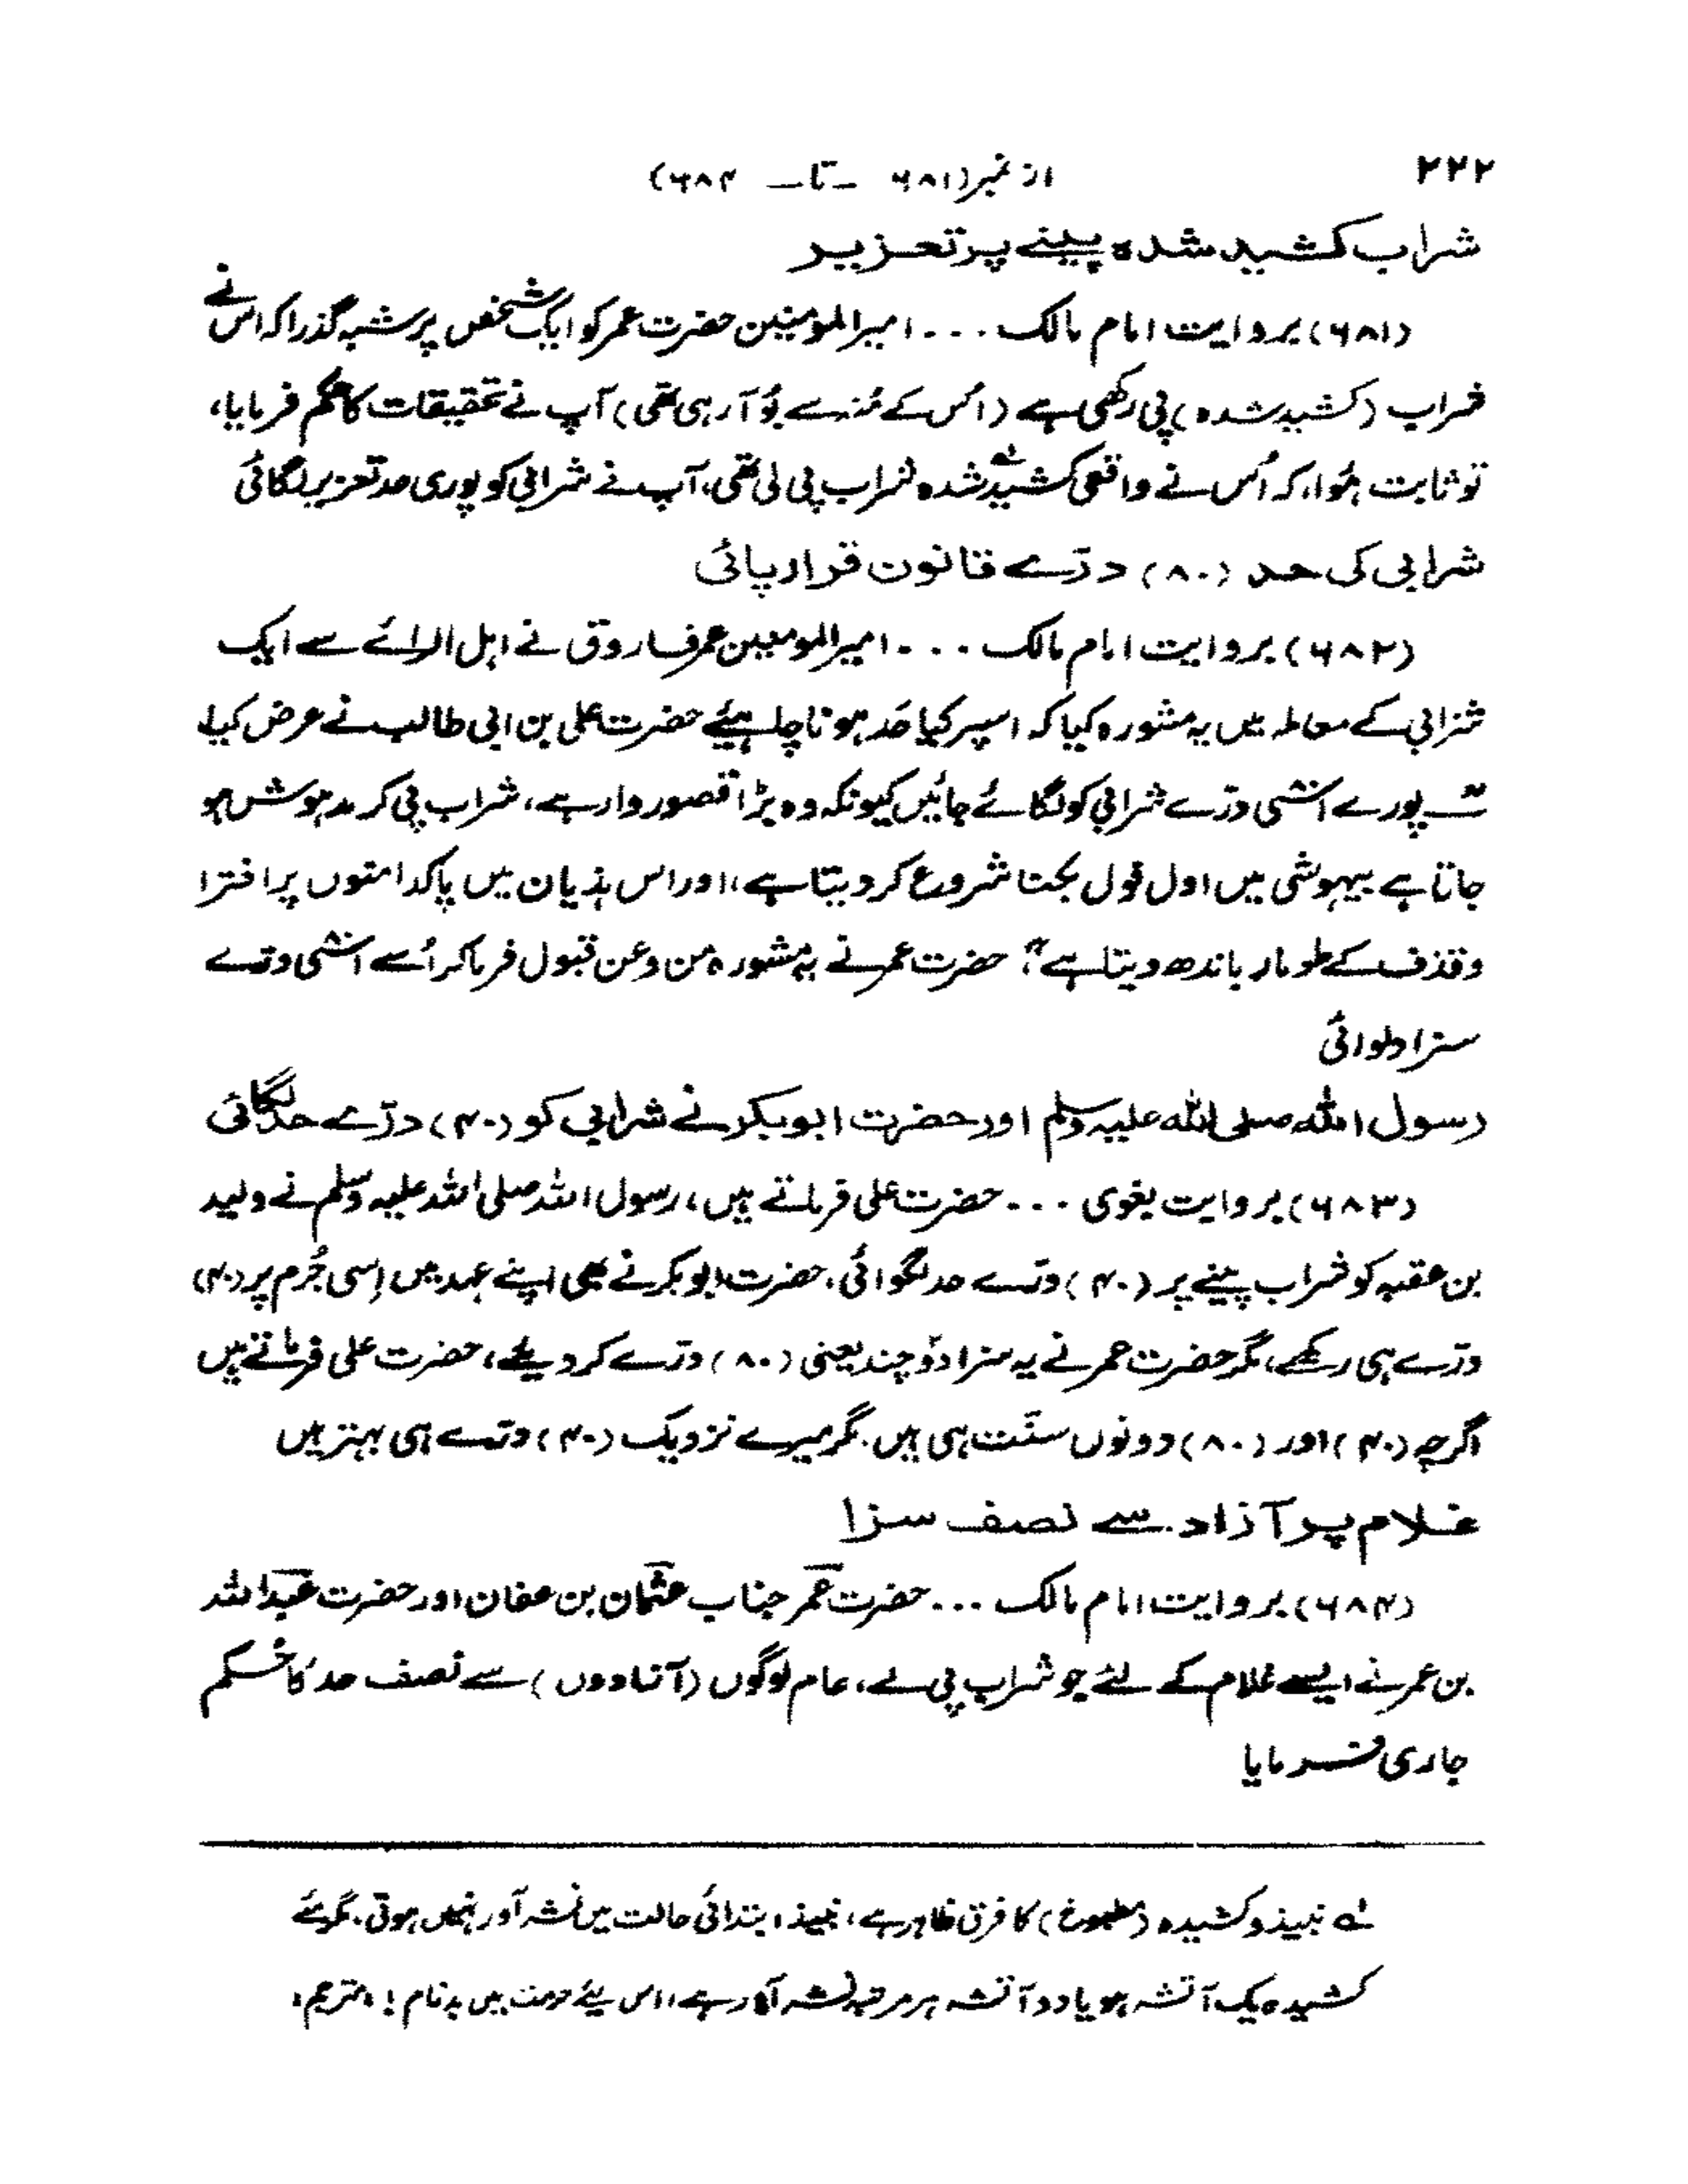 ۲۲۲ از نمبر (۶۸۱ ـ تا ـ ۶۸۴)
شراب کشید شدہ پینے پر تعزیر
(۶۸۱) بروایت امام مالک ... امیرالمومنین حضرت عمر کو ایک شخص پر شبہ گذرا کہ اس نے
شراب (کشید شدہ) پی رکھی ہے (اُس کے مُنہ سے بُو آ رہی تھی) آپ نے تحقیقات کا حکم فرمایا،
تو ثابت ہُوا، کہ اُس نے واقعی کشید شدہ شراب پی لی تھی، آپ نے شرابی کو پوری حد تعزیر لگائی
شرابی کی حد (۸۰) درّے قانون قرار پائی
(۶۸۲) بروایت امام مالک ... امیرالمومنین عمر فاروق نے اہل الرائے سے ایک
شرابی کے معاملہ میں یہ مشورہ کیا کہ اسپر کیا حَد ہونا چاہیئے حضرت علی بن ابی طالب نے عرض کیا
پورے اسّی درّے شرابی کو لگائے جائیں کیونکہ وہ بڑا قصور وار ہے، شراب پی کر مدہوش ہو
جاتا ہے بیہوشی میں اول فول بکنا شروع کر دیتا ہے، اور اس ہذیان میں پاکدامنوں پر افترا
وقذف کے طومار باندھ دیتا ہے"؛ حضرت عمر نے یہ مشورہ من وعن قبول فرما کر اُسے اسّی درّے
سزا دلوائی
رسول اللہ صلی اللہ علیہ وسلم اور حضرت ابوبکر نے شرابی کو (۴۰) درّے حد لگائی
(۶۸۳) بروایت بغوی ... حضرت علی فرماتے ہیں، رسول اللہ صلی اللہ علیہ وسلم نے ولید
بن عقبہ کو شراب پینے پر (۴۰) درّے حد لگوائی، حضرت ابوبکر نے بھی اپنے عہد میں اِسی جُرم پر (۴۰)
درّے ہی رکھے، مگر حضرت عمر نے یہ سزا دوُ چند یعنی (۸۰) درّے کر دیئے، حضرت علی فرماتے ہیں
اگرچہ (۴۰) اور (۸۰) دونوں سنّت ہی ہیں۔ مگر میرے نزدیک (۴۰) درّے ہی بہتر ہیں
غلام پر آزاد سے نصف سزا
(۶۸۴) بروایت امام مالک ... حضرت عمر جناب عثمان بن عفان اور حضرت عبداللہ
بن عمر نے ایسے غلام کے لئے جو شراب پی لے، عام لوگوں (آزادوں) سے نصف حد کا حکم
جاری فرمایا
لے نبیذ و کشیدہ (مطبوخ) کا فرق ظاہر ہے، نبیذ ابتدائی حالت میں نشہ آور نہیں ہوتی۔ مگر مئے
کشیدہ یک آتشہ ہو یا دو آتشہ ہر مرتبہ نشہ آور ہے، اس لیئے حرمت میں بدنام! ؛ مترجم ؛